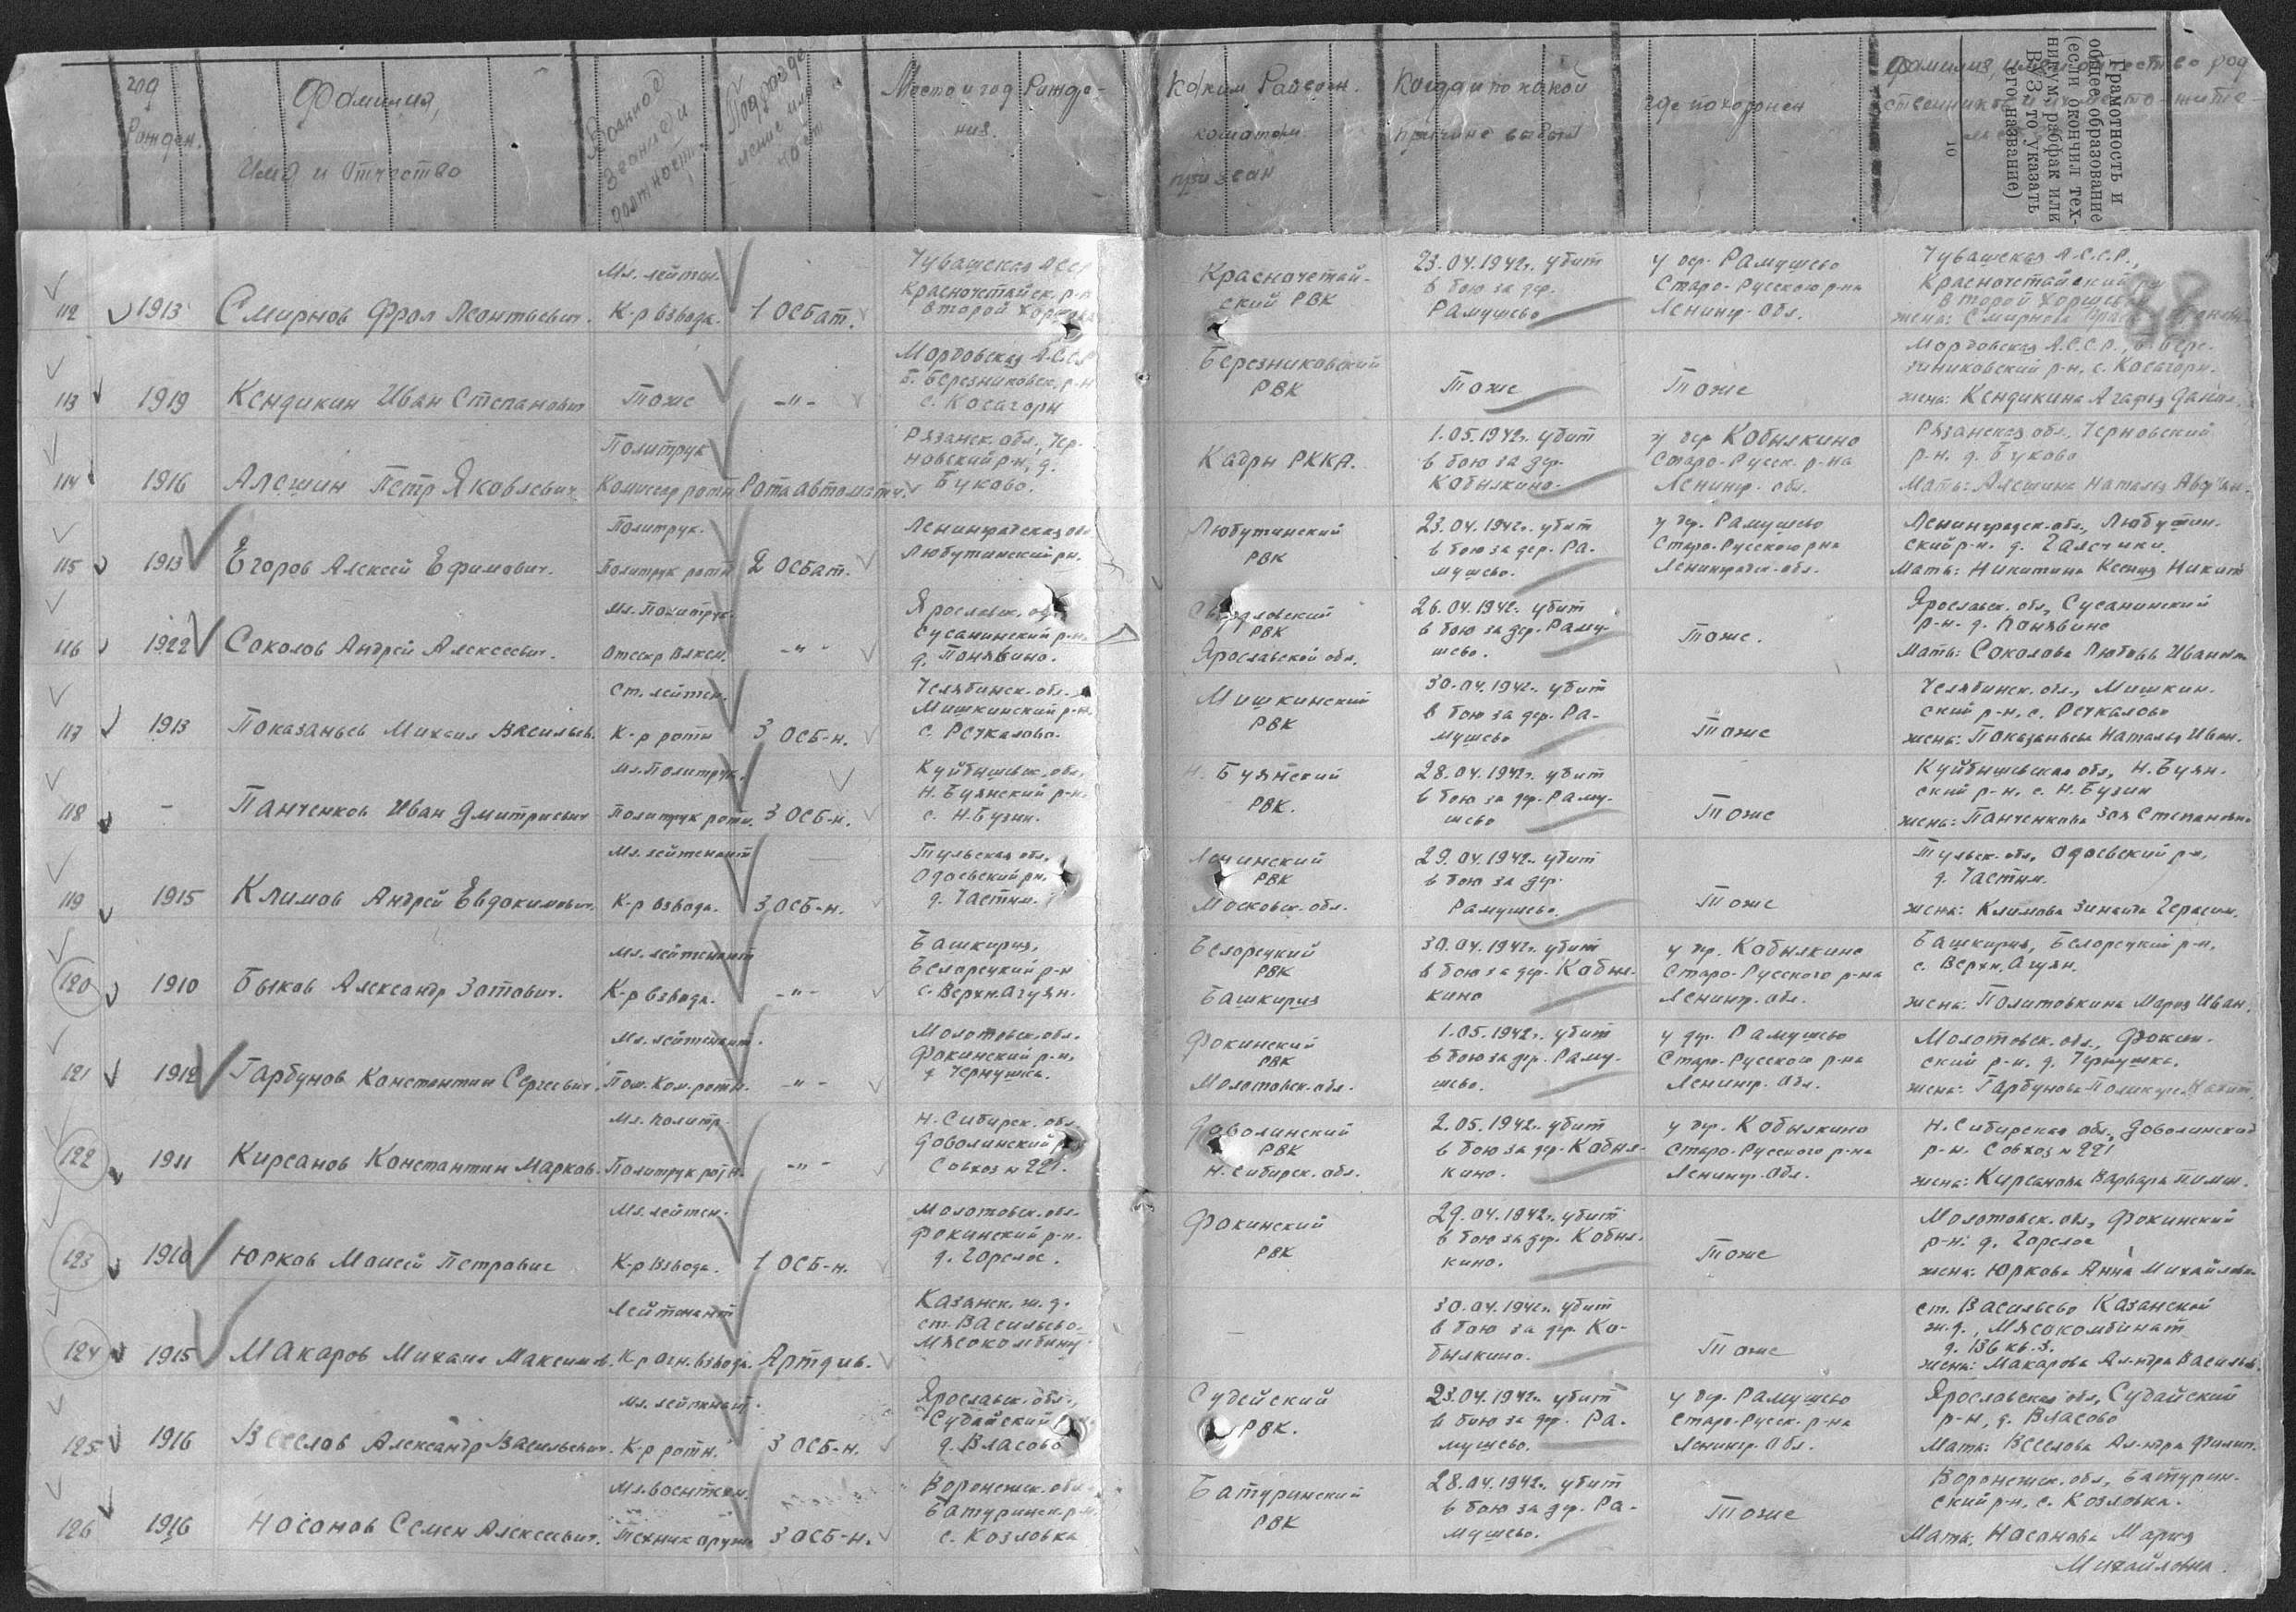 год Рожден.
Фамилия,
Имя и Отчество
Военное звание и должность
Подразделение или часть
Место и год Рождения.
Каким Райвоен. коматом призван
Когда и по какой причине выбыл
где похоронен
Фамилия, имя и отчество родственников и их место-жите-
10
Грамотность и общее образование (если окончил техникум, рабфак или ВУЗ, то указать его название)
88
112 1913 Смирнов Фрол Леонтьевич.
Мл. лейтен.
К-р взвода.
1 ОСБат.
Чувашская АССР
Красночетайск. р-н
Второй Хоршева
Красночетай-
ский РВК
23.04.1942г. убит
в бою за дер.
Рамушево
у дер. Рамушево
Старо-Русского р-на
Ленингр. Обл.
Чувашская А.С.С.Р.,
Красночетайский р-н
Второй Хоршев
жена: Смирнова
113 1919 Кендикин Иван Степанович
Тоже
-"-
Мордовская А.С.С.Р
Б. Березниковск. р-н
с. Косагоры
Березниковский
РВК
Тоже
Тоже
Мордовская А.С.С.Р., Б. Бере-
зниковский р-н. с. Косагоры.
жена: Кендикина Агафия Данил.
114 1916 Алешин Петр Яковлевич
Политрук
Комиссар роты
Рота автоматч.
Рязанск. обл., Чер-
новский р-н, д.
Буково.
Кадры РККА.
1.05.1942г. убит
в бою за дер.
Кобылкино.
у дер Кобылкино
Старо-Русск. р-на
Ленингр. обл.
Рязанская обл., Черновский
р-н. д. Буково
Мать: Алешина Наталья
115 1913 Егоров Алексей Ефимович.
Политрук.
Политрук роты
2 ОСБат.
Ленинградская обл
Любутинский рн.
Любутинский
РВК
23.04.1942г. убит
в бою за дер. Ра-
мушево.
у дер. Рамушево
Старо-Русского рна
Ленинградск. обл.
Ленинградск. обл., Любутин-
ский р-н. д. Галечики.
Мать: Никитина Ксения Никит
116 1922 Соколов Андрей Алексеевич.
Мл. Политрук.
Отсекр ВЛКСМ.
-"-
Ярославск. обл.
Сусанинский р-н.
д. Понявино.
Свердловский
РВК
Ярославской обл.
26.04.1942г. убит
в бою за дер. Раму-
шево.
Тоже.
Ярославск. обл, Сусанинский
р-н. д. Понявино
Мать: Соколова Любовь Ивановн
117 1913 Показаньев Михаил Васильев.
Ст. лейтен.
К-р роты
3 ОСБ-н.
Челябинск. обл.
Мишкинский р-н.
с. Речкалово.
Мишкинский
РВК
30.04.1942г. убит
в бою за дер. Ра-
мушево
Тоже
Челябинск. обл., Мишкин-
ский р-н. с. Речкалово
жена: Показаньева Наталья Иван.
118 - Панченков Иван Дмитриевич
Мл. Политрук.
Политрук роты.
3 ОСБ-н.
Куйбышевск. обл,
Н. Буянский р-н.
с. Н. Буян.
Н. Буянский
РВК.
28.04.1942г. убит
в бою за дер. Раму-
шево
Тоже
Куйбышевская обл, Н. Буян-
ский р-н. с. Н. Буян
жена: Панченкова Зоя Степановна
119 1915 Климов Андрей Евдокимович.
Мл. лейтенант
К-р взвода.
3 ОСБ-н.
Тульская обл,
Одоевский рн,
д. Частны.
Ленинский
РВК
Московск. обл.
29.04.1942г. убит
в бою за дер.
Рамушево.
Тоже
Тульск. обл, Одоевский р-н,
д. Частны.
жена: Климова Зинаида Герасим.
120 1910 Быков Александр Зотович.
Мл. лейтенант
К-р взвода.
-"-
Башкирия,
Белорецкий р-н
с. Верхн. Агуян.
Белорецкий
РВК
Башкирия
30.04.1942г. убит
в бою за дер. Кобыл-
кино
у дер. Кобылкино
Старо-Русского р-на
Ленингр. обл.
Башкирия, Белорецкий р-н,
с. Верхн. Агуян.
жена: Политовкина Мария Иван.
121 1912 Гарбунов Константин Сергеевич.
Мл. лейтенант.
Пом. Ком. роты.
-"-
Молотовск. обл.
Фокинский р-н,
д Чернушка.
Фокинский
РВК
Молотовск. обл.
1.05.1942г. убит
в бою за дер. Раму-
шево.
у дер. Рамушево
Старо-Русского р-на
Ленингр. Обл.
Молотовск. обл., Фокин-
ский р-н. д. Чернушка.
жена: Гарбунова
122 1911 Кирсанов Константин Марков.
Мл. политр.
Политрук роты.
-"-
Н. Сибирск. обл.
Доволинский
Совхоз № 221.
Доволинский
РВК
Н. Сибирск. обл.
2.05.1942г. убит
в бою за дер. Кобыл-
кино.
у дер. Кобылкино
Старо-Русского р-на
Ленингр. Обл.
Н. Сибирская обл, Доволинский
р-н. Совхоз № 221
жена: Кирсанова Варвара
123 1910 Юрков Моисей Петрович
Мл. лейтен.
К-р Взвода.
1 ОСБ-н.
Молотовск. обл.
Фокинский р-н.
д. Горелое.
Фокинский
РВК
29.04.1942г. убит
в бою за дер. Кобыл-
кино.
Тоже
Молотовск. обл, Фокинский
р-н. д. Горелое
жена: Юркова Анна Михайловн.
124 1915 Макаров Михаил Максимов.
Лейтенант
К-р огн. взвода.
Артдив.
Казанск. ж. д.
ст. Васильево.
Мясокомбинат
-
30.04.1942г. убит
в бою за дер. Ко-
былкино.
Тоже
ст. Васильево Казанской
ж.д., Мясокомбинат
д. 136 кв. 3.
жена: Макарова Ал-ндра Васильев.
125 1916 Веселов Александр Васильевич.
Мл. лейтенант.
К-р роты.
3 ОСБ-н.
Ярославск. обл.,
Судайский
д. Власово
Судейский
РВК.
23.04.1942г. убит
в бою за дер. Ра-
мушево.
у дер. Рамушево
Старо-Русск. р-на
Ленингр. Обл.
Ярославская обл, Судайский
р-н, д. Власово
Мать: Веселова Ал-ндра Филип.
126 1916 Носонов Семен Алексеевич.
Мл. воентехн.
Техник оруж.
3 ОСБ-н.
Воронежск. обл.
Батуринск. р-н.
с. Козловка
Батуринский
РВК
28.04.1942г. убит
в бою за дер. Ра-
мушево.
Тоже
Воронежск. обл, Батурин-
ский рн, с. Козловка.
Мать, Насонова Мария
Михайловна.